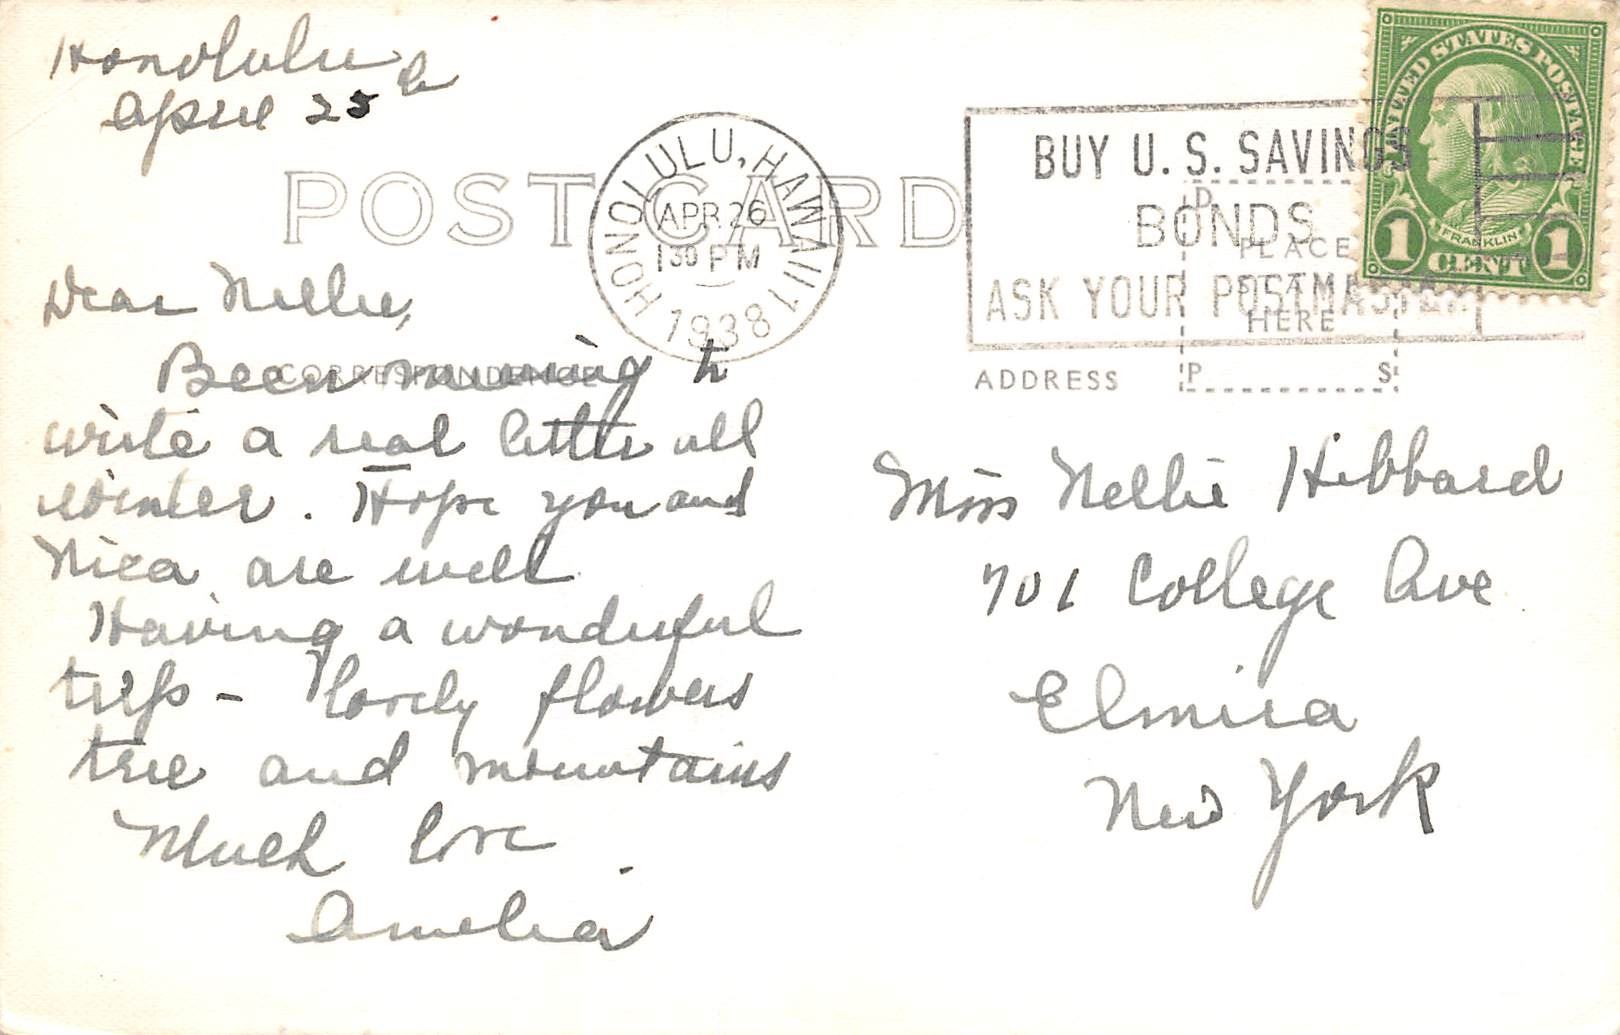 Honolulu
April 25th
POST CARD
HONOLULU, HAWAII
APR 26
1 30 PM
1938
BUY U. S. SAVINGS
BONDS
ASK YOUR POSTMASTER
UNITED STATES POSTAGE
FRANKLIN
1 CENT 1
PLACE
STAMP
HERE
P
P S
CORRESPONDENCE
ADDRESS
Dear Nellie,
Been meaning to
write a real letter all
winter. Hope you and
Nica are well
Having a wonderful
trip - lovely flowers
tree and mountains
Much love
Amelia
Miss Nellie Hibbard
701 College Ave
Elmira
New York